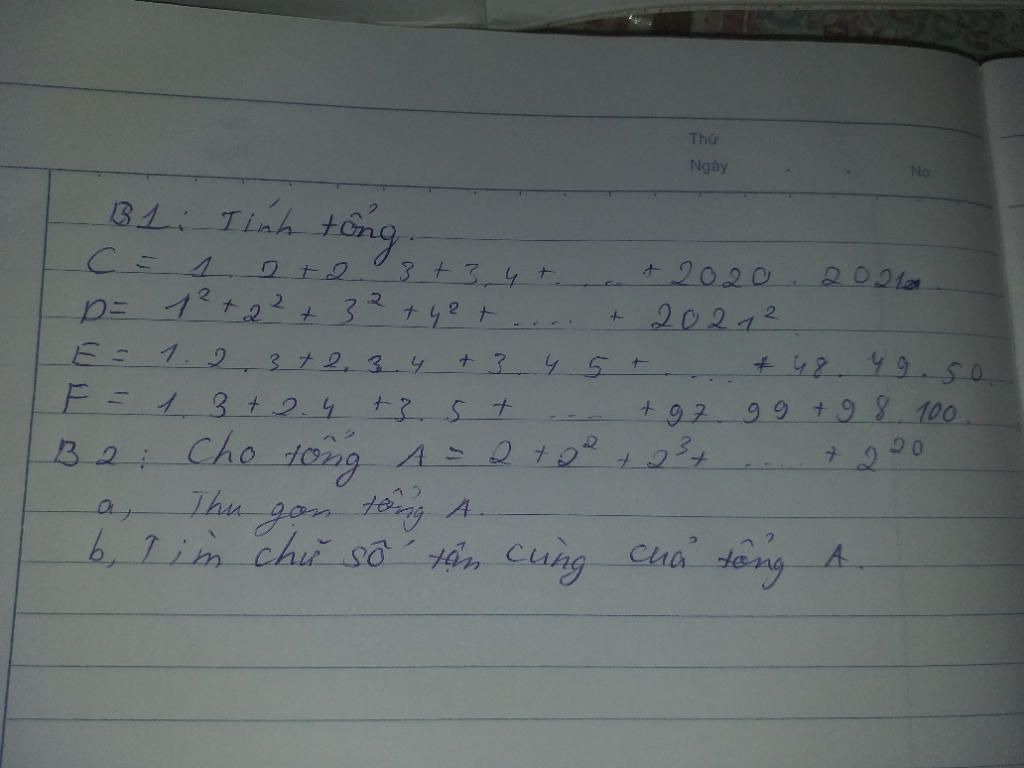 Thứ
Ngày . . No.
B1: Tính tổng.
C = 1.2+2.3+3.4+....+2020.2021
D= 1²+2²+3²+4²+....+2021²
E = 1.2.3+2.3.4+3.4.5+....+48.49.50.
F = 1.3+2.4+3.5+....+97.99+98.100.
B2: Cho tổng A = 2+2²+2³+....+2²⁰
a, Thu gọn tổng A.
b, Tìm chữ số tận cùng của tổng A.